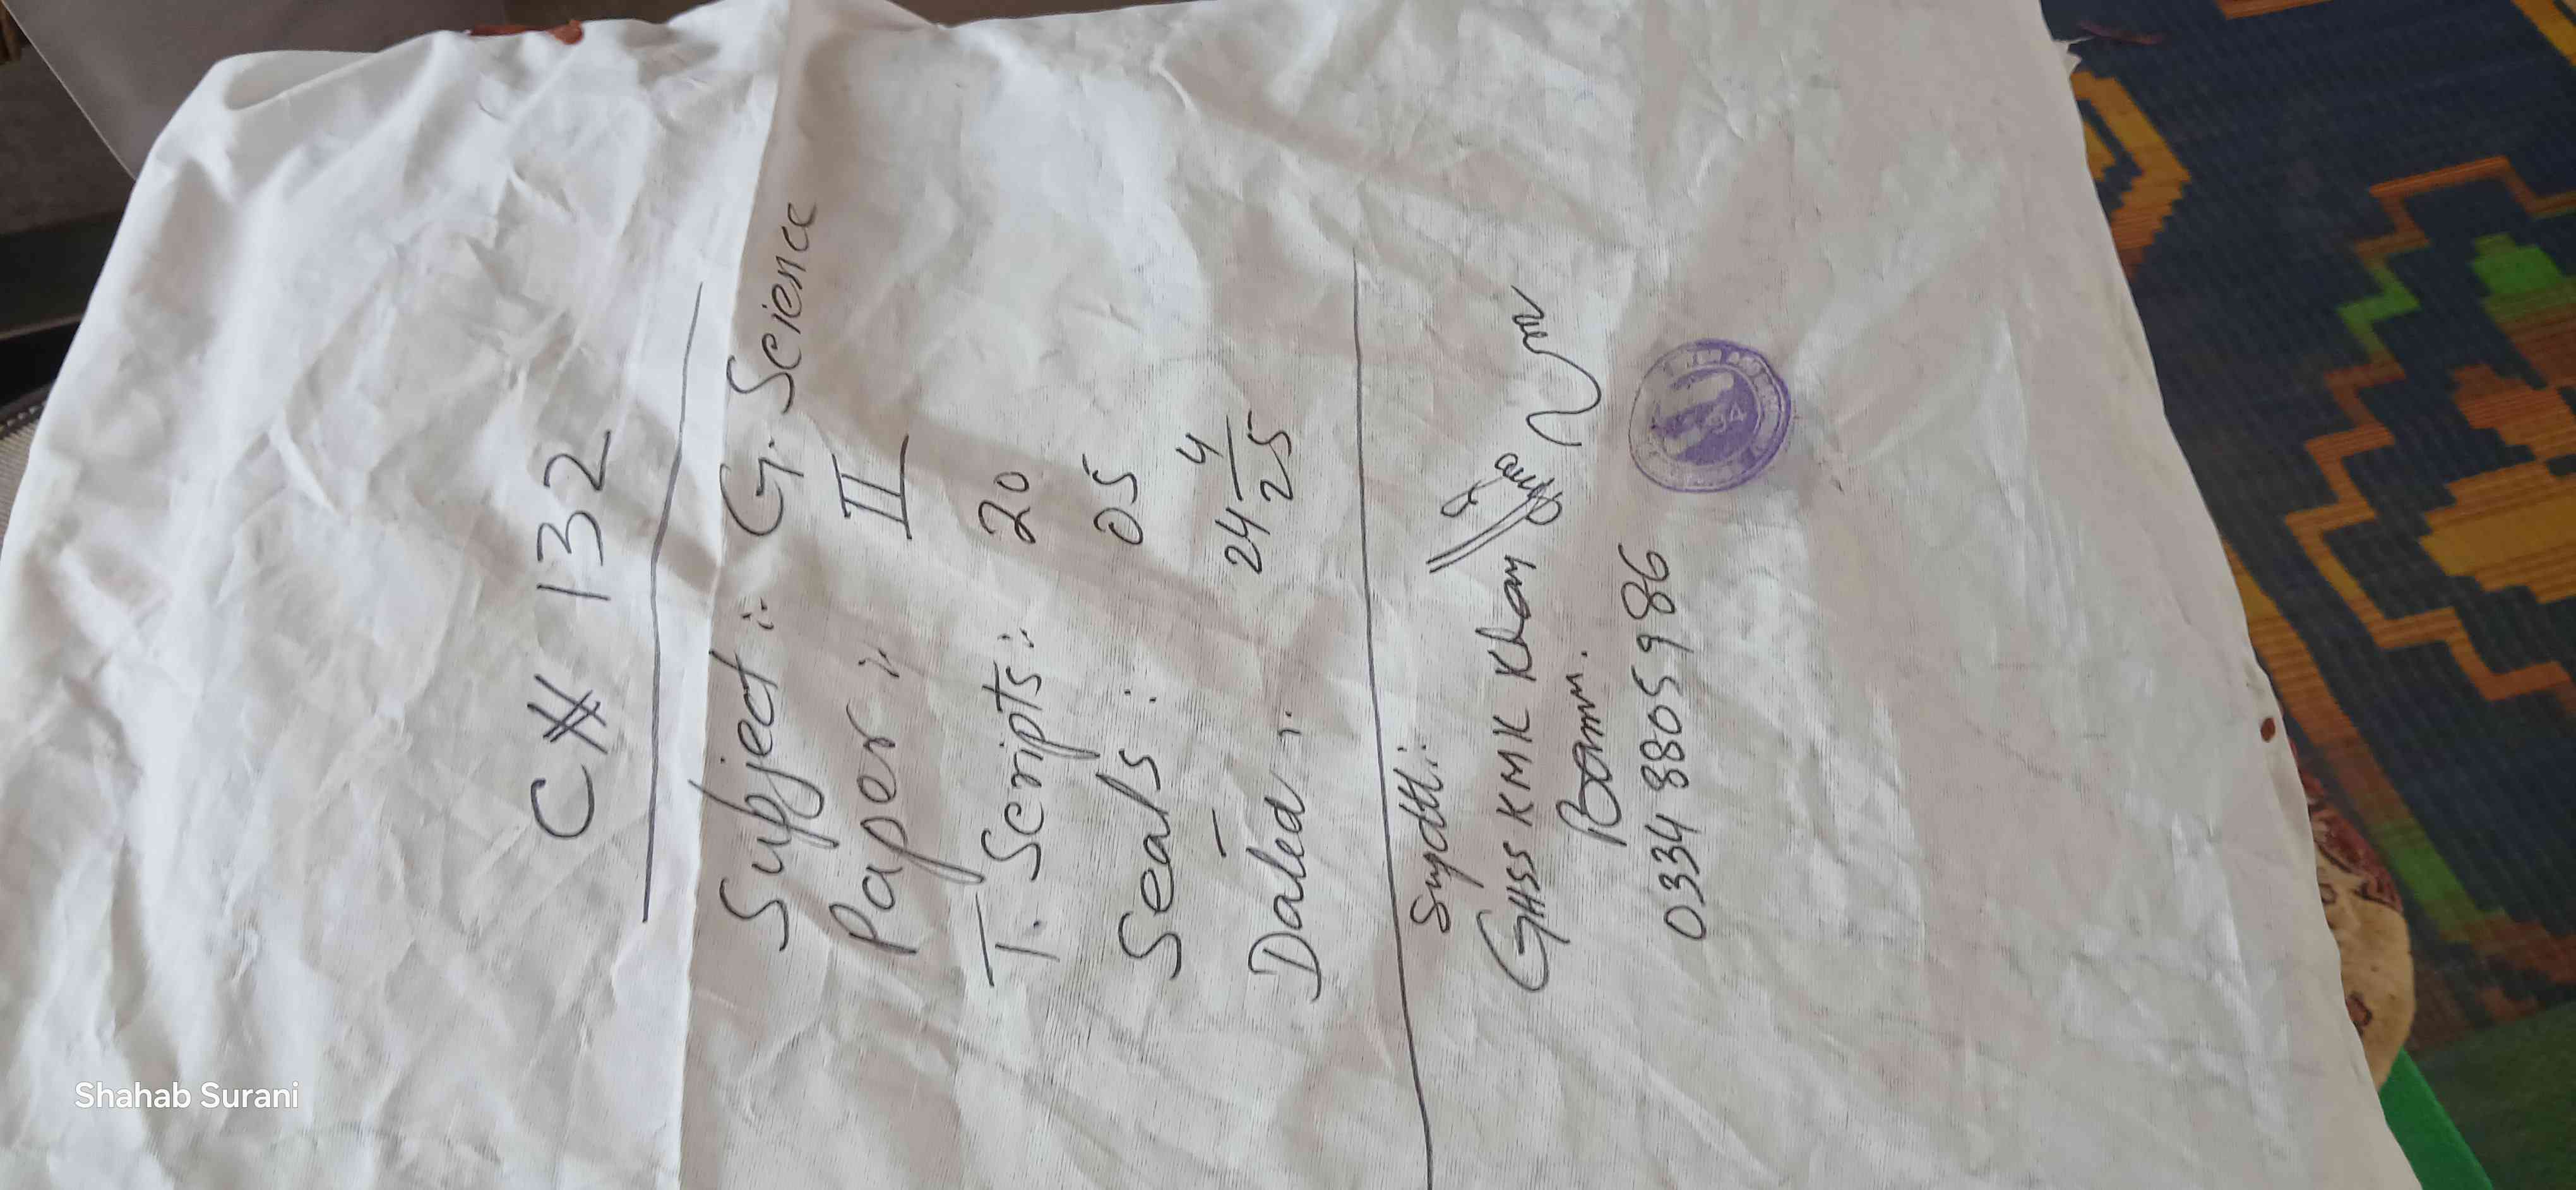 C# 132
Subject:- G. Science
Paper:- II
T. Scripts:- 20
Seals: 05
Dated:- 24 4/25
Supdtt:
GHSS KMK Khan
Bannu.
0334 8805986
Shahab Surani